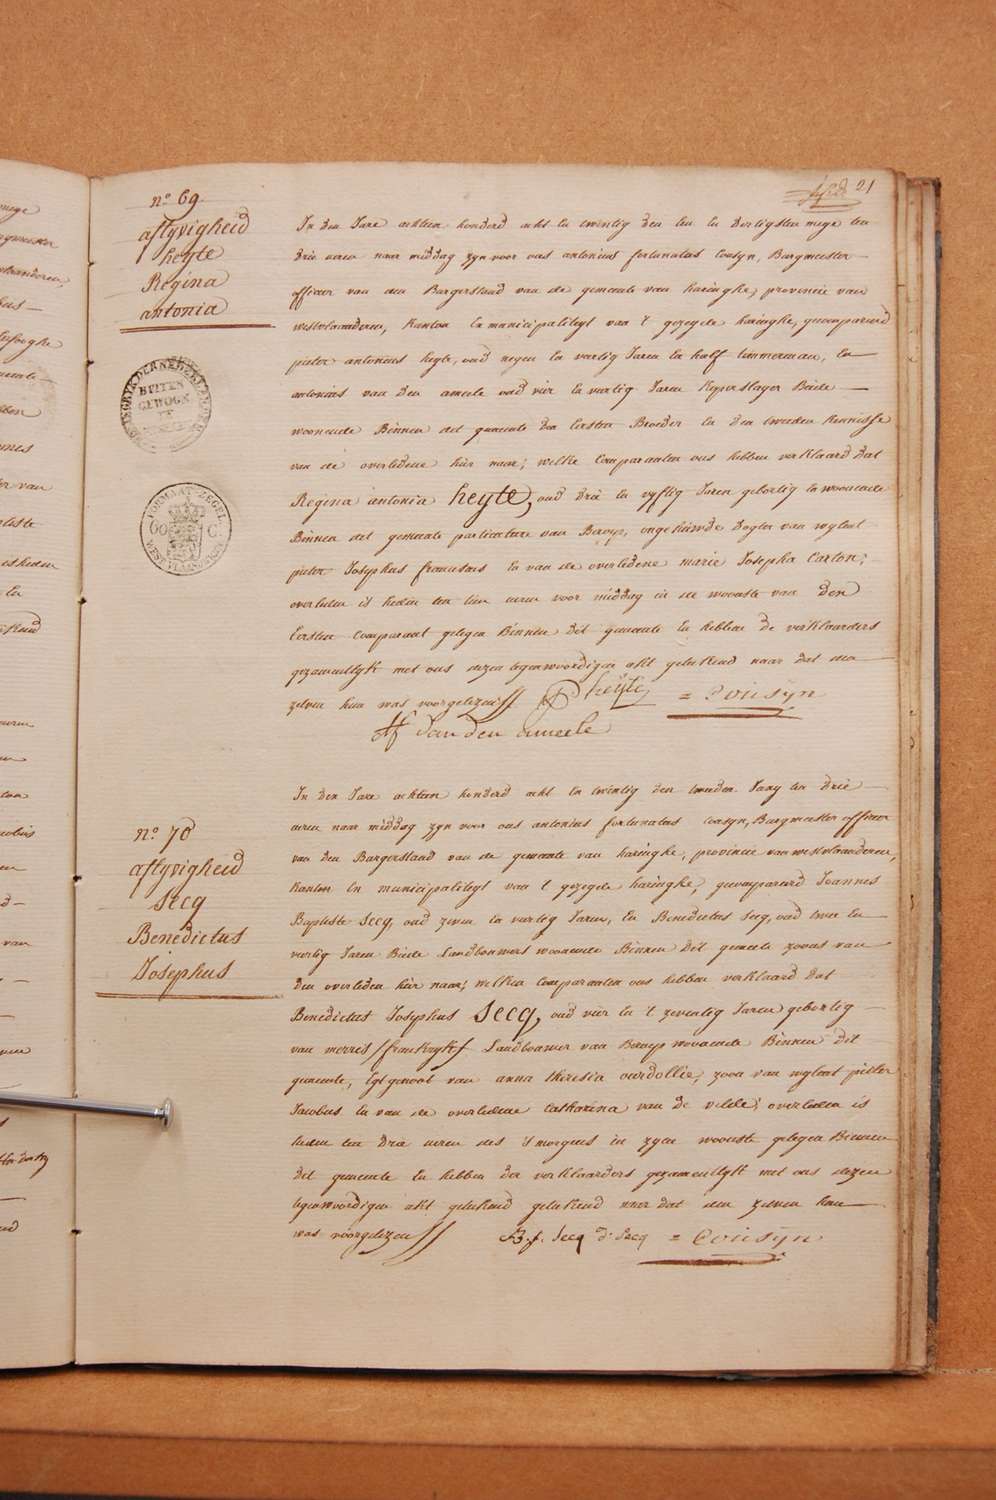 21
nº 69.
aflyvigheid
heyte
Regina
antonia
In den Jare achtien honderd acht en twintig den een en dertigsten meye ten
drie uren naer middag zyn voor ons antonius fortunatus Cousyn, Burgmeester
officier van den Burgerstand van de gemeente van haringhe, provincie van
westvlaanderen, kanton en municipaliteyt van 't gezegde haringhe, gecompareerd
pieter antonius heyte, oud negen en veertig Jaren en half timmerman, en
antonius van den ameele oud vier en veertig Jaren kuyperslager Beide
woonende Binnen det gemeente den Eersten Broeder en den tweeden kennisse
van de overledene hier naer; welke Comparanten ons hebben verklaard dat
Regina antonia heyte, oud drie en vyftig Jaren geboitig en woonende
Binnen det gemeente particuliere van Beroep, ongehuwde Dogter van wylent
pieter Josephus franciscus en van de overledene marie Josepha Carton;
overleden is heden ten tien uren voor middag in de wooonste van den
Eersten Comparant gelegen Binnen Dit gemeente En hebben de verklaarders
gezamentlyk met ons dezen tegenwoordigen akt geteekend naer dat
zelven hun was voorgelezen
P heyte = Cousyn
Af Van den ameele
BUITEN
GEWOON
FORMAAT-ZEGEL
60 C.
WEST VLAANDEREN
nº 70
aflyvigheid
Secq
Benedictus
Josephus
In den Jare achtien honderd acht en twintig den tweeden Juny ten drie
uren naer middag zyn voor ons antonius fortunatus Cousyn, Burgmeester officier
van den Burgerstand van de gemeente van haringhe, provincie van westvlaanderen,
kanton en municipaliteyt van 't gezegde haringhe, gecompareerd Joannes
Baptiste Secq, oud zeven en veertig Jaren, En Benedictus Secq, oud twee en
veertig Jaren Beide Landbouwers woonende Binnen Dit gemeente zoons van
den overleden hier naer; welken Comparanten ons hebben verklaard dat
Benedictus Josephus Secq, oud vier en 't zeventig Jaren geboitig
van merris /frankryk/ Landbouwer van Beroep woonende Binnen dit
gemeente, Egtgenoot van anna theresia ourdollie, zoon van wylent pieter
Jacobus en van de overledene Catharina van de velde; overleden is
heden ten drie uren des s'morgens in zyne woonste gelegen Binnen
dit gemeente En hebben de verklaarders gezamentlyk met ons dezen
tegenwoordigen akt geteekend naer dat den zelven hun
was voorgelezen
B. j. Secq d: Secq = Cousyn